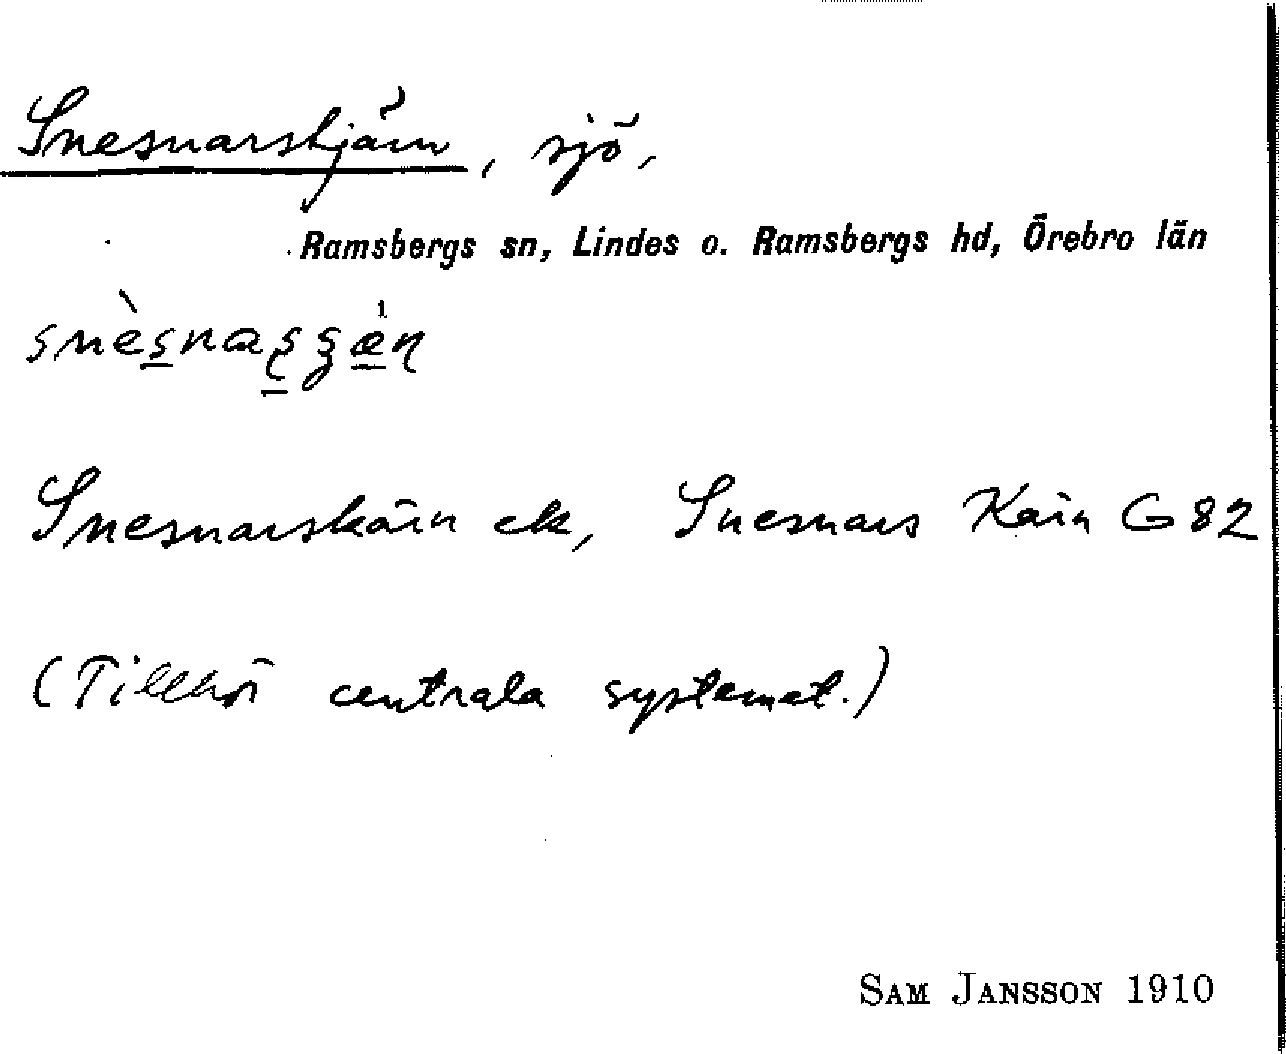 Snesnarstjärn, sjö,
Ramsbergs sn, Lindes o. Ramsbergs hd, Örebro län
Snesnarskärn ek, Snesnars Kärn G 82
(Tillhör centrala systemet.)
SAM JANSSON 1910